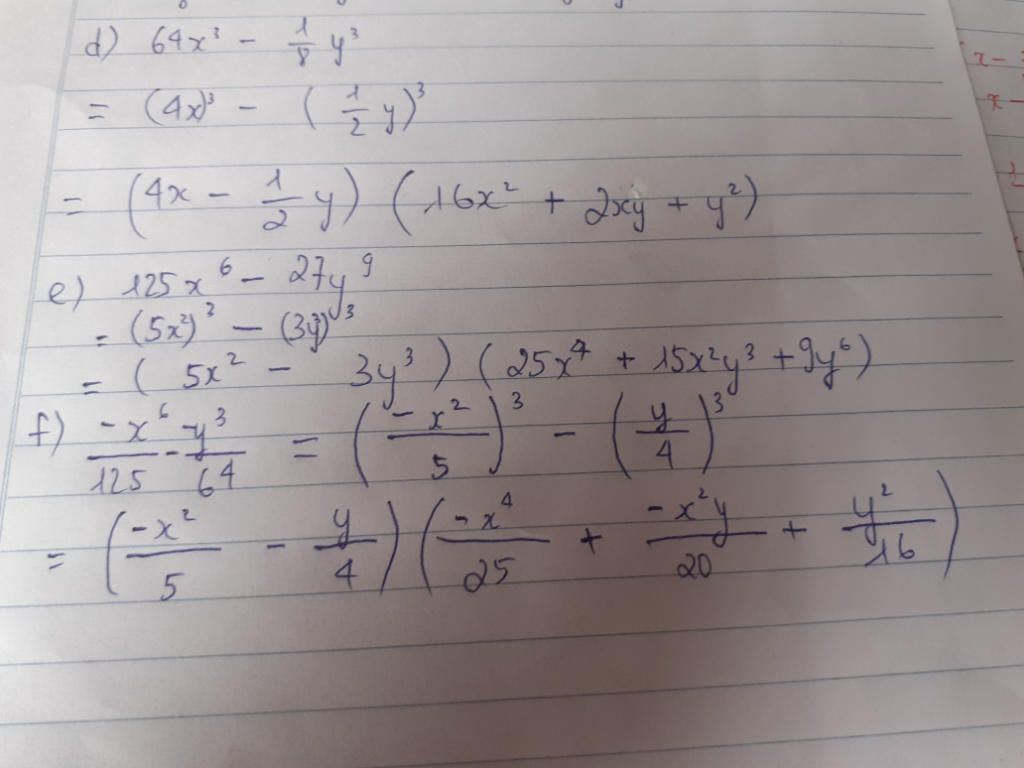 d) 64x³ - 1/8 y³
= (4x)³ - (1/2 y)³
= (4x - 1/2 y) (16x² + 2xy + y²)
e) 125x⁶ - 27y⁹
= (5x²)³ - (3y³)³
= (5x² - 3y³) (25x⁴ + 15x²y³ + 9y⁶)
f) -x⁶/125 - y³/64 = (-x²/5)³ - (y/4)³
= (-x²/5 - y/4) (-x⁴/25 + -x²y/20 + y²/16)